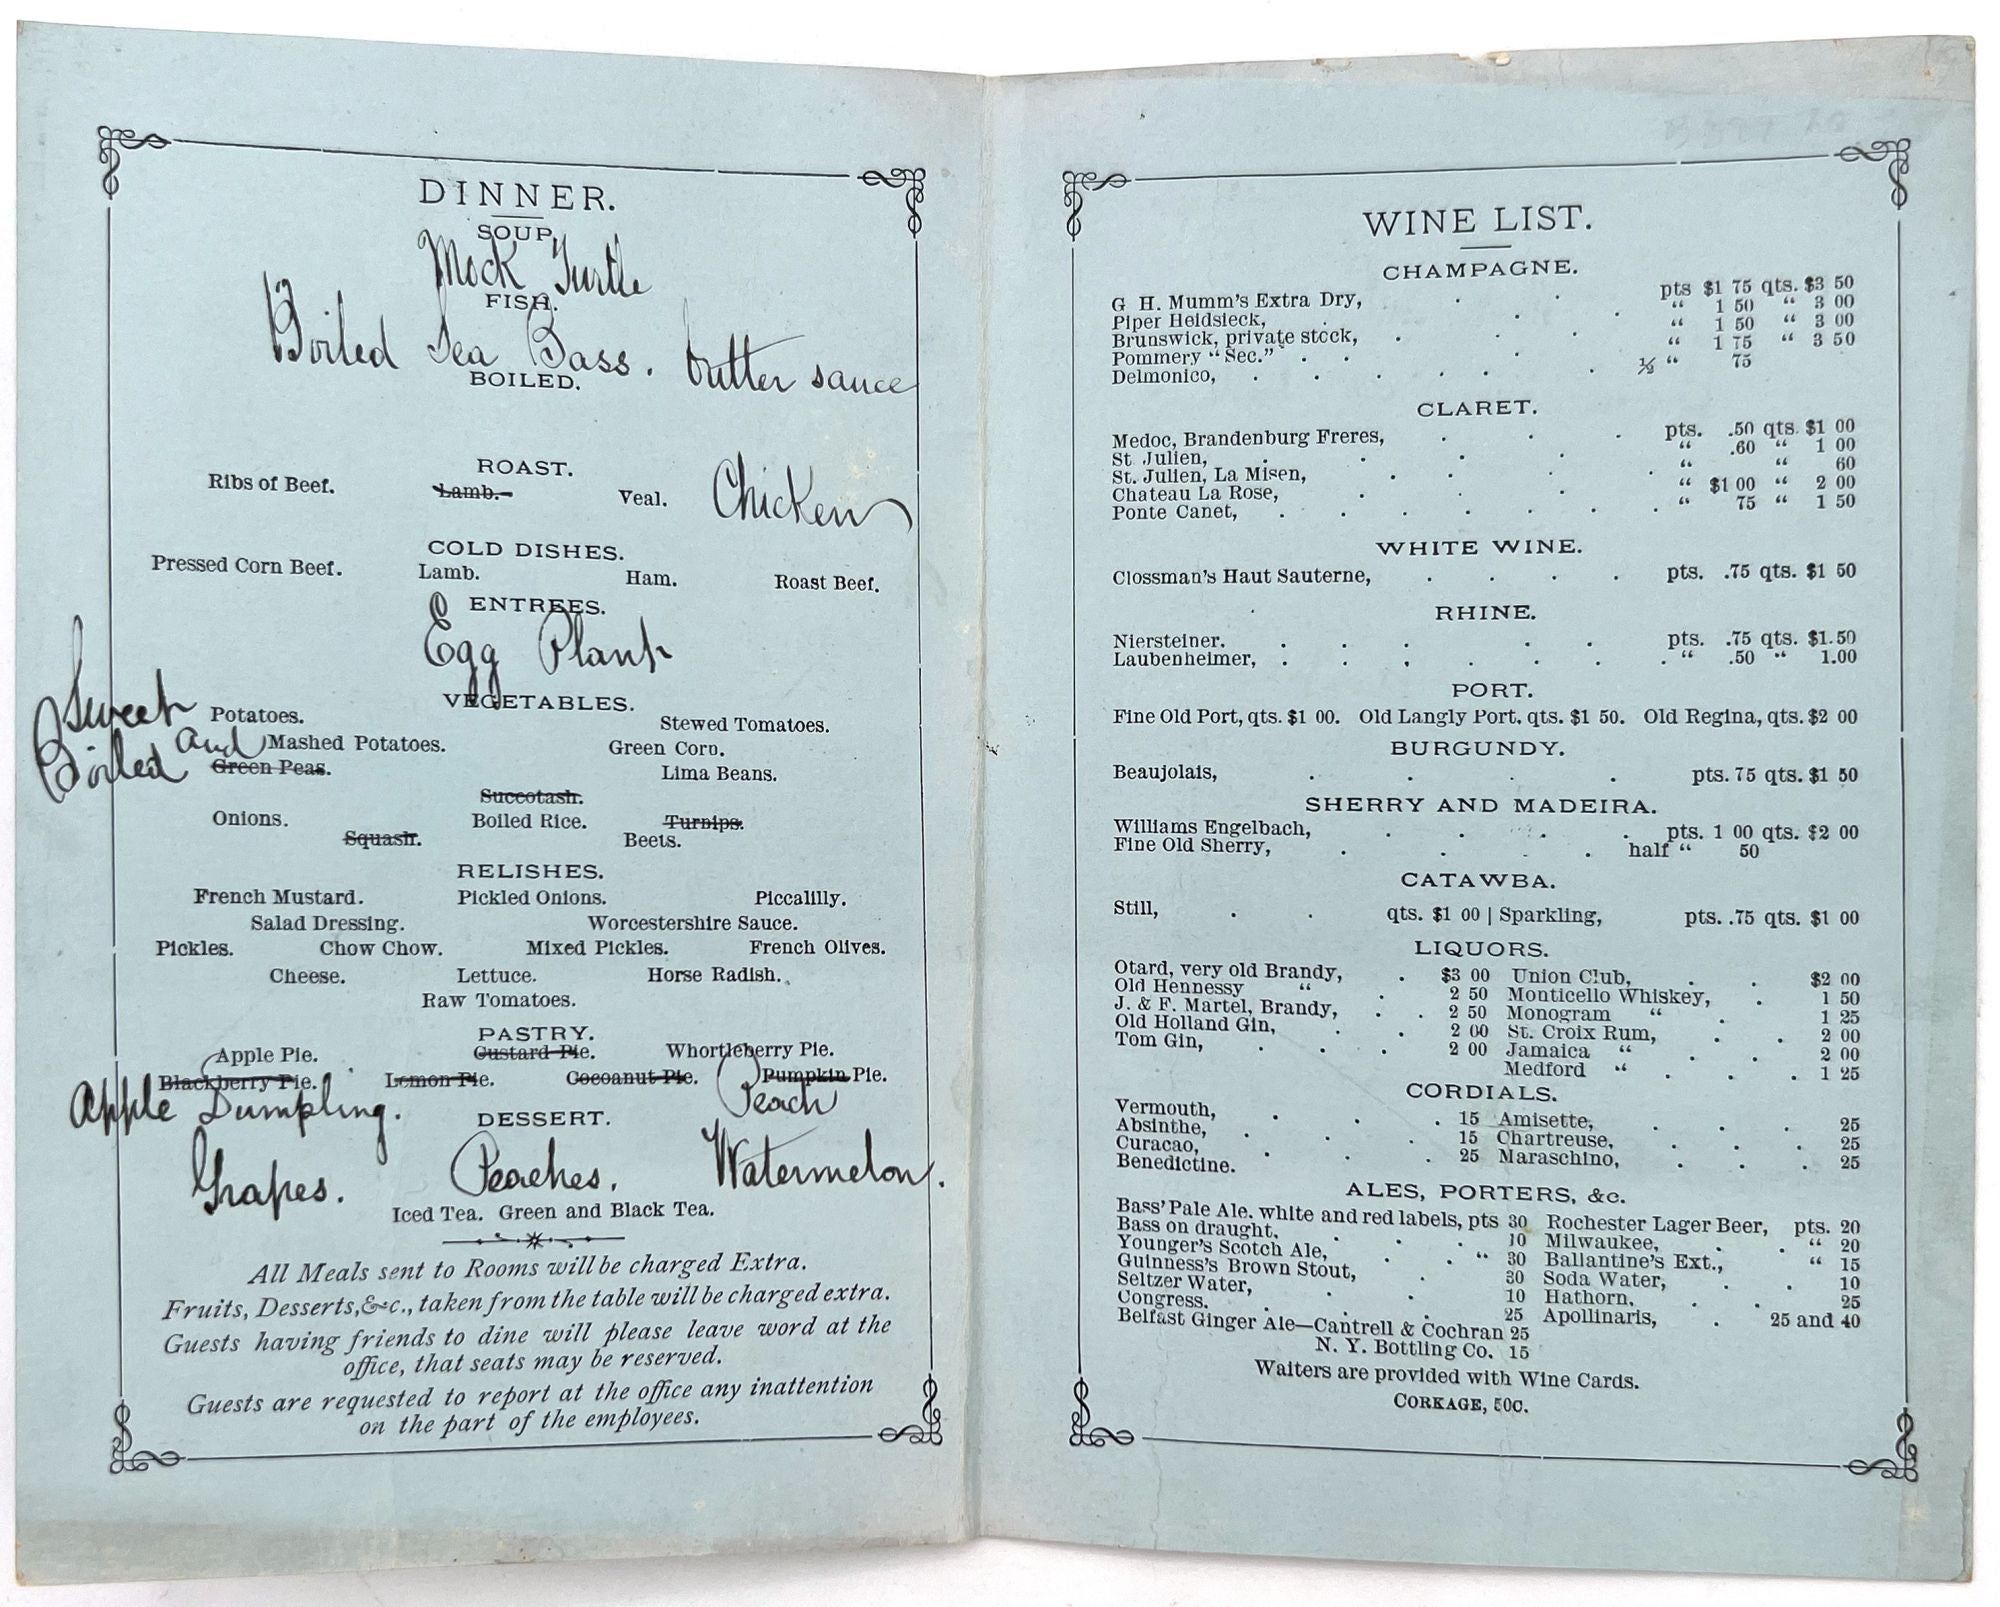 DINNER.
SOUP.
Mock Turtle
FISH.
Boiled Sea Bass. butter sauce
BOILED.
ROAST.
Ribs of Beef. Lamb. Veal. Chicken
COLD DISHES.
Pressed Corn Beef. Lamb. Ham. Roast Beef.
ENTREES.
Egg Plant
VEGETABLES.
Sweet Potatoes. Stewed Tomatoes.
Boiled and Mashed Potatoes. Green Corn.
Green Peas. Lima Beans.
Succotash.
Onions. Boiled Rice. Turnips.
Squash. Beets.
RELISHES.
French Mustard. Pickled Onions. Piccalilly.
Salad Dressing. Worcestershire Sauce.
Pickles. Chow Chow. Mixed Pickles. French Olives.
Cheese. Lettuce. Horse Radish.
Raw Tomatoes.
PASTRY.
Apple Pie. Custard Pie. Whortleberry Pie.
Blackberry Pie. Lemon Pie. Cocoanut Pie. Pumpkin Pie.
Apple Dumpling. Peach
DESSERT.
Grapes. Peaches. Watermelon.
Iced Tea. Green and Black Tea.
All Meals sent to Rooms will be charged Extra.
Fruits, Desserts, &c., taken from the table will be charged extra.
Guests having friends to dine will please leave word at the
office, that seats may be reserved.
Guests are requested to report at the office any inattention
on the part of the employees.
WINE LIST.
CHAMPAGNE.
G H. Mumm's Extra Dry, pts $1 75 qts. $3 50
Piper Heidsieck, " 1 50 " 3 00
Brunswick, private stock, " 1 50 " 3 00
Pommery "Sec." " 1 75 " 3 50
Delmonico, ½ " 75
CLARET.
Medoc, Brandenburg Freres, pts. .50 qts. $1 00
St Julien, " .60 " 1 00
St. Julien, La Misen, " " 60
Chateau La Rose, " $1 00 " 2 00
Ponte Canet, " 75 " 1 50
WHITE WINE.
Clossman's Haut Sauterne, pts. .75 qts. $1 50
RHINE.
Niersteiner. pts. .75 qts. $1.50
Laubenheimer, " .50 " 1.00
PORT.
Fine Old Port, qts. $1 00. Old Langly Port. qts. $1 50. Old Regina, qts. $2 00
BURGUNDY.
Beaujolais, pts. 75 qts. $1 50
SHERRY AND MADEIRA.
Williams Engelbach, pts. 1 00 qts. $2 00
Fine Old Sherry, half " 50
CATAWBA.
Still, qts. $1 00 | Sparkling, pts. .75 qts. $1 00
LIQUORS.
Otard, very old Brandy, $3 00 Union Club, $2 00
Old Hennessy " 2 50 Monticello Whiskey, 1 50
J. & F. Martel, Brandy, 2 50 Monogram " 1 25
Old Holland Gin, 2 00 St. Croix Rum, 2 00
Tom Gin, 2 00 Jamaica " 2 00
Medford " 1 25
CORDIALS.
Vermouth, 15 Amisette, 25
Absinthe, 15 Chartreuse, 25
Curacao, 25 Maraschino, 25
Benedictine.
ALES, PORTERS, &c.
Bass' Pale Ale. white and red labels, pts 30 Rochester Lager Beer, pts. 20
Bass on draught. 10 Milwaukee, " 20
Younger's Scotch Ale, " 30 Ballantine's Ext., " 15
Guinness's Brown Stout, 30 Soda Water, 10
Seltzer Water, 10 Hathorn. 25
Congress. 25 Apollinaris, 25 and 40
Belfast Ginger Ale—Cantrell & Cochran 25
N. Y. Bottling Co. 15
Waiters are provided with Wine Cards.
CORKAGE, 50C.